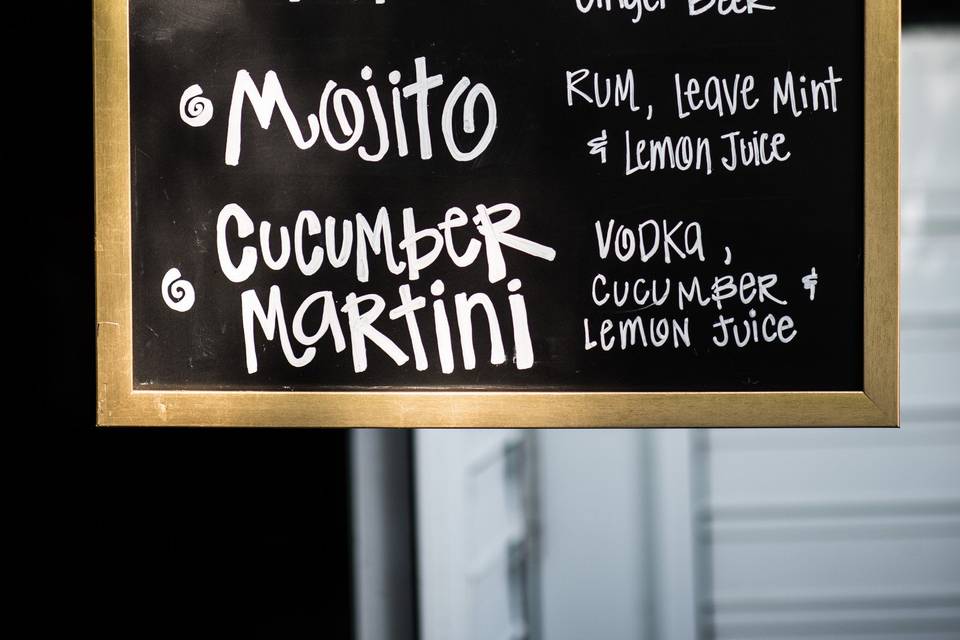 Ginger Beer
Mojito
RUM, Leave Mint
& Lemon Juice
CUCUMBER
Martini
VODKA,
CUCUMBER &
LEMON JUICE